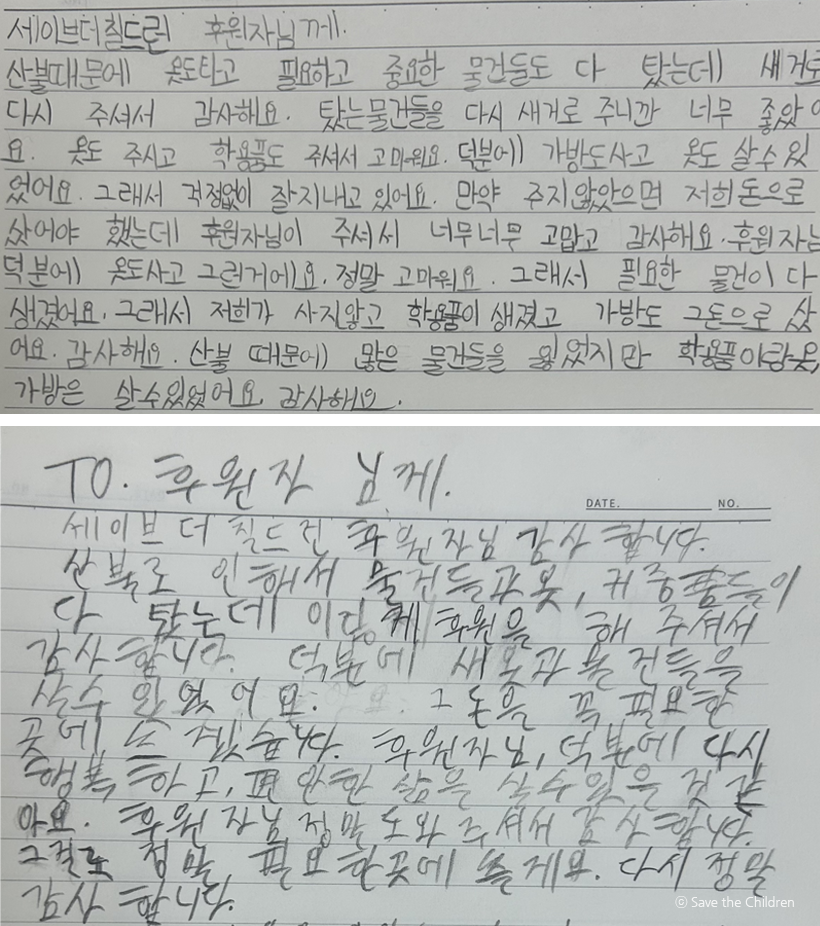 세이브더칠드런 후원자님께.
산불때문에 옷도타고 필요하고 중요한 물건들도 다 탔는데 새거로
다시 주셔서 감사해요. 탔는물건들을 다시 새거로 주니깐 너무 좋았어
요. 옷도 주시고 학용품도 주셔서 고마워요. 덕분에 가방도사고 옷도 살수있
었어요. 그래서 걱정없이 잘지내고 있어요. 만약 주지않았으면 저희돈으로
샀어야 했는데 후원자님이 주셔서 너무너무 고맙고 감사해요. 후원자님
덕분에 옷도사고 그런거에요. 정말 고마워요. 그래서 필요한 물건이 다
생겼어요. 그래서 저희가 사지않고 학용품이 생겼고 가방도 그돈으로 샀
어요. 감사해요. 산불 때문에 많은 물건들을 잃었지만 학용품이랑옷,
가방은 살수있었어요. 감사해요.
TO. 후원자 님께.
DATE. NO.
세이브 더 칠드런 후원자님 감사 합니다.
산불로 인해서 물건들과 옷, 귀중품들이
다 탔는데 이렇게 후원을 해 주셔서
감사 합니다. 덕분에 새옷과 물건들을
살수 있었어요. 그 돈을 꼭 필요한
곳에 쓰겠습니다. 후원자님, 덕분에 다시
행복하고, 편안한 삶을 살수있을 것 같
아요. 후원자님 정말 도와 주셔서 감사합니다.
그걸로 정말 필요한곳에 쓸게요. 다시 정말
감사 합니다.
ⓒ Save the Children